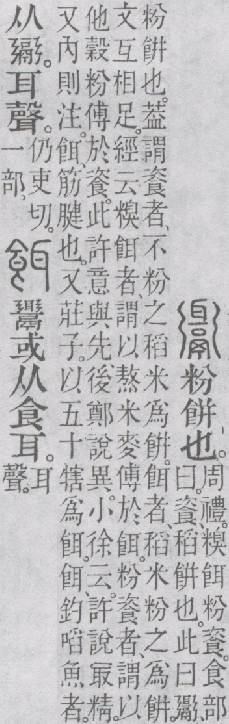 𩱧粉餅也。
周禮。糗餌粉餈。食部
曰。餈、稻餅也。此曰𩱧
粉餅也。葢謂餈者、不粉之稻米爲餅。餌者、稻米粉之爲餅。
文互相足。經云糗餌者、謂以熬米麥傅於餌。粉餈者、謂以
他穀粉傅於餈。此許意與先後鄭說異。小徐云。許說㝡精。
又內則注。餌、筋腱也。又莊子。以五十犗爲餌。餌、鉤啗魚者。
从𩰲。耳聲。
仍吏切。
一部。
餌𩱧或从食。耳
耳
聲。